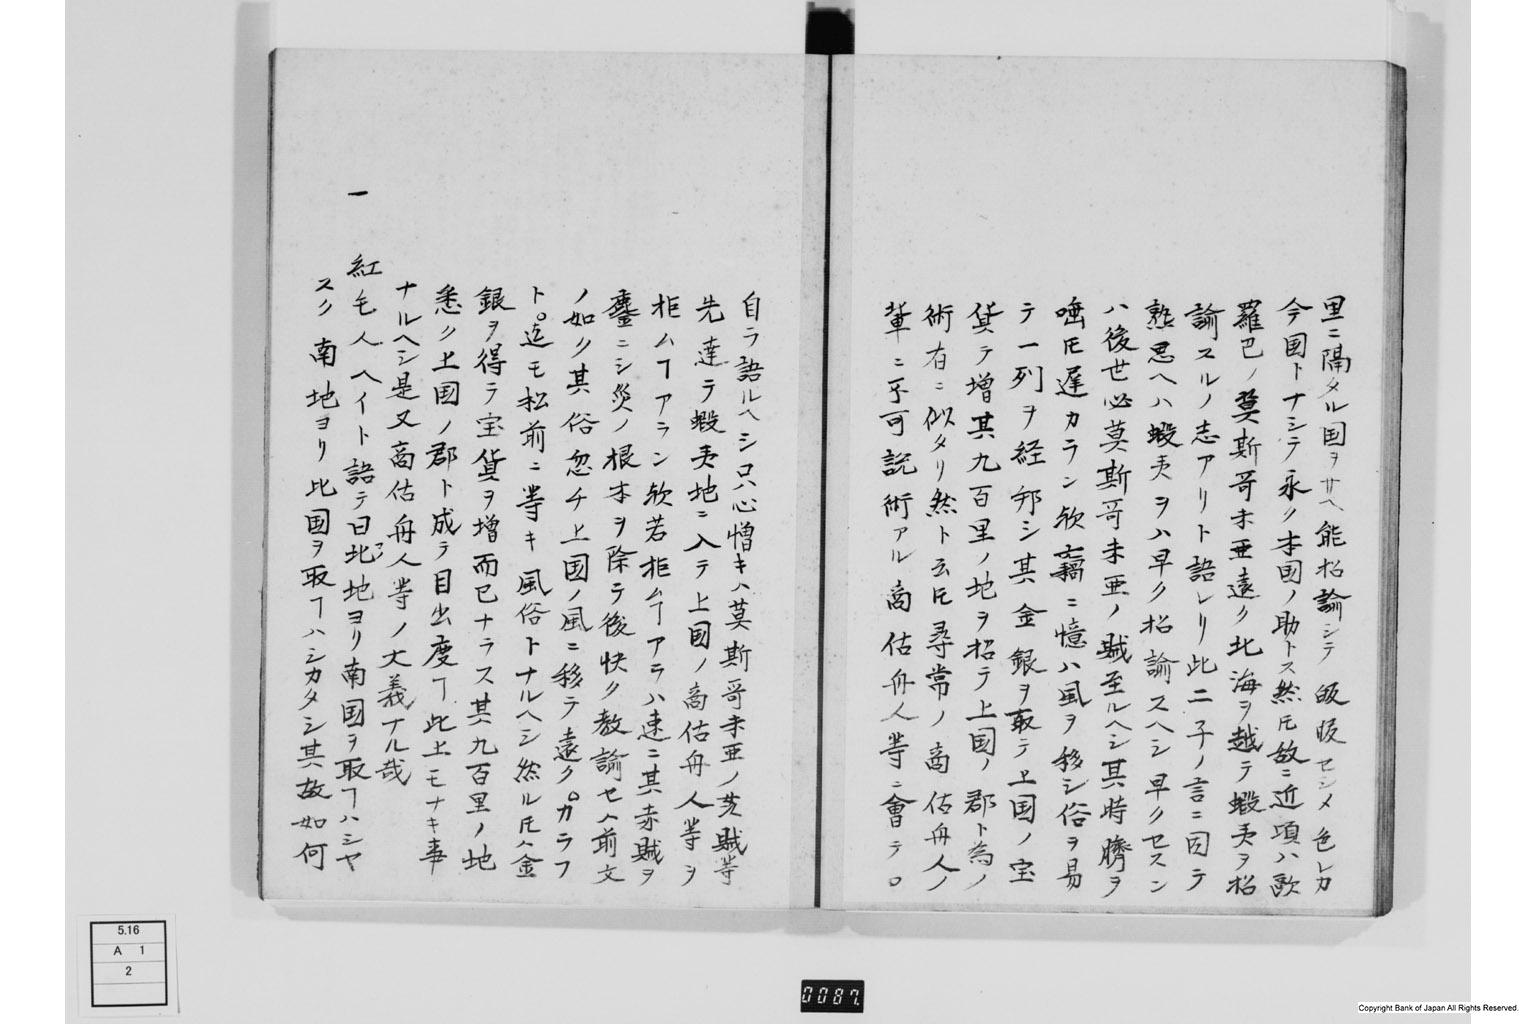 里ニ隔タル国ヲサヘ能招諭シテ皈服セシメ色レカ
今国トナシテ永ク本国ノ助トス然ㇳモ故ニ近項ハ歐
羅巴ノ莫斯哥未亜遠ク北海ヲ越テ蝦夷ヲ招
諭スルノ志アリト語レリ此二子ノ言ニ因テ
熟思ヘハ蝦夷ヲハ早ク招諭スヘシ早クセスン
ハ後世必莫斯哥未亜ノ賊至ルヘシ其時臍ヲ
唾ㇳモ遅カラン欤竊ニ憶ハ風ヲ移シ俗ヲ易
テ一列ヲ経邦シ其金銀ヲ取テ上国ノ宝
貨テ増其九百里ノ地ヲ招テ上国ノ郡ト為ノ
術有ニ似タリ然ト云ㇳモ尋常ノ商估舟人ノ
輩ニ不可説術アル商估舟人等ニ會テ
自ラ語ルヘシ只心憎キハ莫斯哥未亜ノ賊等
先達テ蝦夷地ニ入テ上国ノ商估舟人等ヲ
拒ムヿアラン欤若拒ムヿアラハ速ニ其赤賊ヲ
鏖ニシ災ノ根本ヲ除テ後快ク教諭セハ前文
ノ如ク其俗忽チ上国ノ風ニ移テ遠クカラフ
ト迄モ松前ニ等キ風俗トナルヘシ然ルㇳモハ金
銀ヲ得テ宝貨ヲ増而已ナラス其九百里ノ地
悉ク上国ノ郡ト成テ目出度ヿ此上モナキ事
ナルヘシ是又商估舟人等ノ大義ナル哉
一 紅毛人ヘイト語テ曰北地ヨリ南国ヲ取ヿハシヤ
スク南地ヨリ北国ヲ取ヿハシカタシ其故如何
5.16
A 1
2
0087.
Copyright Bank of Japan All Rights Reserved.